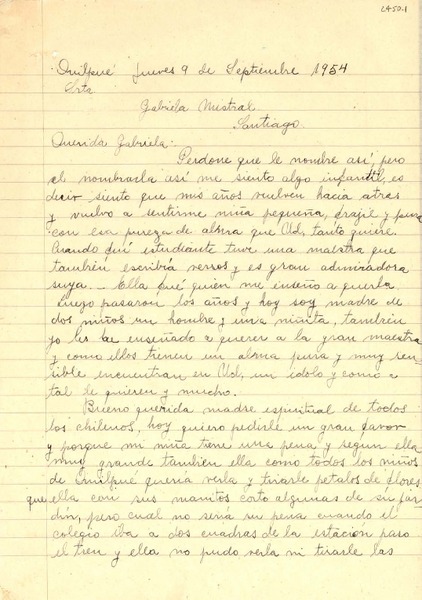 Quilpué Jueves 9 de Septiembre 1954
Srta
Gabriela Mistral
Santiago.
Querida Gabriela:
Perdone que le nombre así, pero
el nombrarla así me siento algo infantil, es
decir siento que mis años vuelven hacia atras
y vuelvo a sentirme niña pequeña, frajil y pura
con esa pureza de alma que Ud. tanto quiere.
Cuando fuí estudiante tuve una maestra que
también escribía versos y es gran admiradora
suya. — Ella fué quien me enseño a quererla
luego pasaron los años y hoy soy madre de
dos niños un hombre y una niñita, también
yo les he enseñado a querer a la gran maestra
y como ellos tienen un alma pura y muy sen-
sible encuentran en Ud. un ídolo y como a
tal le quieren y mucho.
Bueno querida madre espiritual de todos
los chilenos, hoy quiero pedirle un gran favor
y porque mi niña tiene una pena y segun ella
muy grande tambien ella como todos los niños
de Quilpué queria verla y tirarle petalos de flores
que ella con sus manitos corto algunas de su jar-
dín, pero cual no sería su pena cuando el
colegio iba a dos cuadras de la estación paso
el tren y ella no pudo verla ni tirarle las